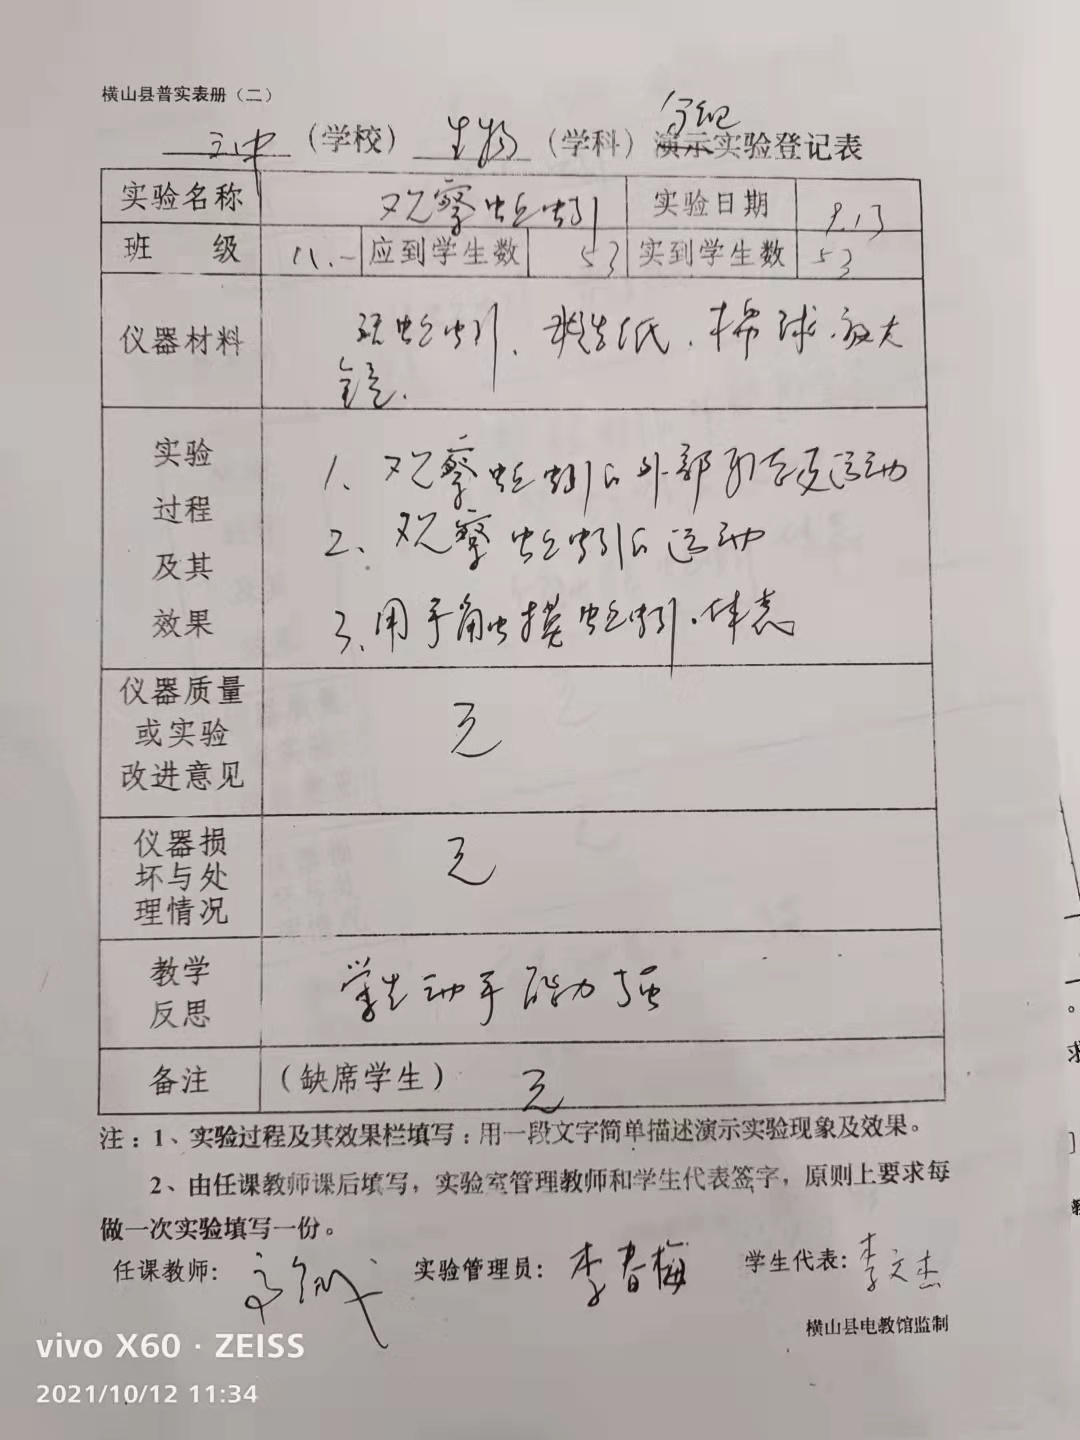 横山县普实表册（二）
分组
三中（学校）生物（学科）演示实验登记表
实验名称 观察蚯蚓 实验日期 9.13
班级 八.一 应到学生数 53 实到学生数 53
仪器材料 活蚯蚓、糙纸、棉球、放大
镜.
实验
过程
及其
效果
1、观察蚯蚓的外部形态及运动
2、观察蚯蚓的运动
3、用手触摸蚯蚓、体表
仪器质量
或实验
改进意见
无
仪器损
坏与处
理情况
无
教学
反思
学生动手能力强
备注 （缺席学生） 无
注：1、实验过程及其效果栏填写：用一段文字简单描述演示实验现象及效果。
2、由任课教师课后填写，实验室管理教师和学生代表签字，原则上要求每
做一次实验填写一份。
任课教师： 实验管理员：李春梅 学生代表：李文杰
横山县电教馆监制
vivo X60 · ZEISS
2021/10/12 11:34
求